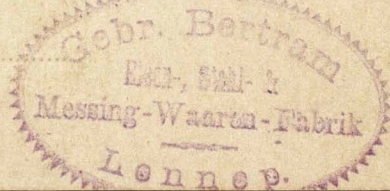 Gebr. Bertram
Eisen-, Stahl- &
Messing-Waaren-Fabrik
Lennep.